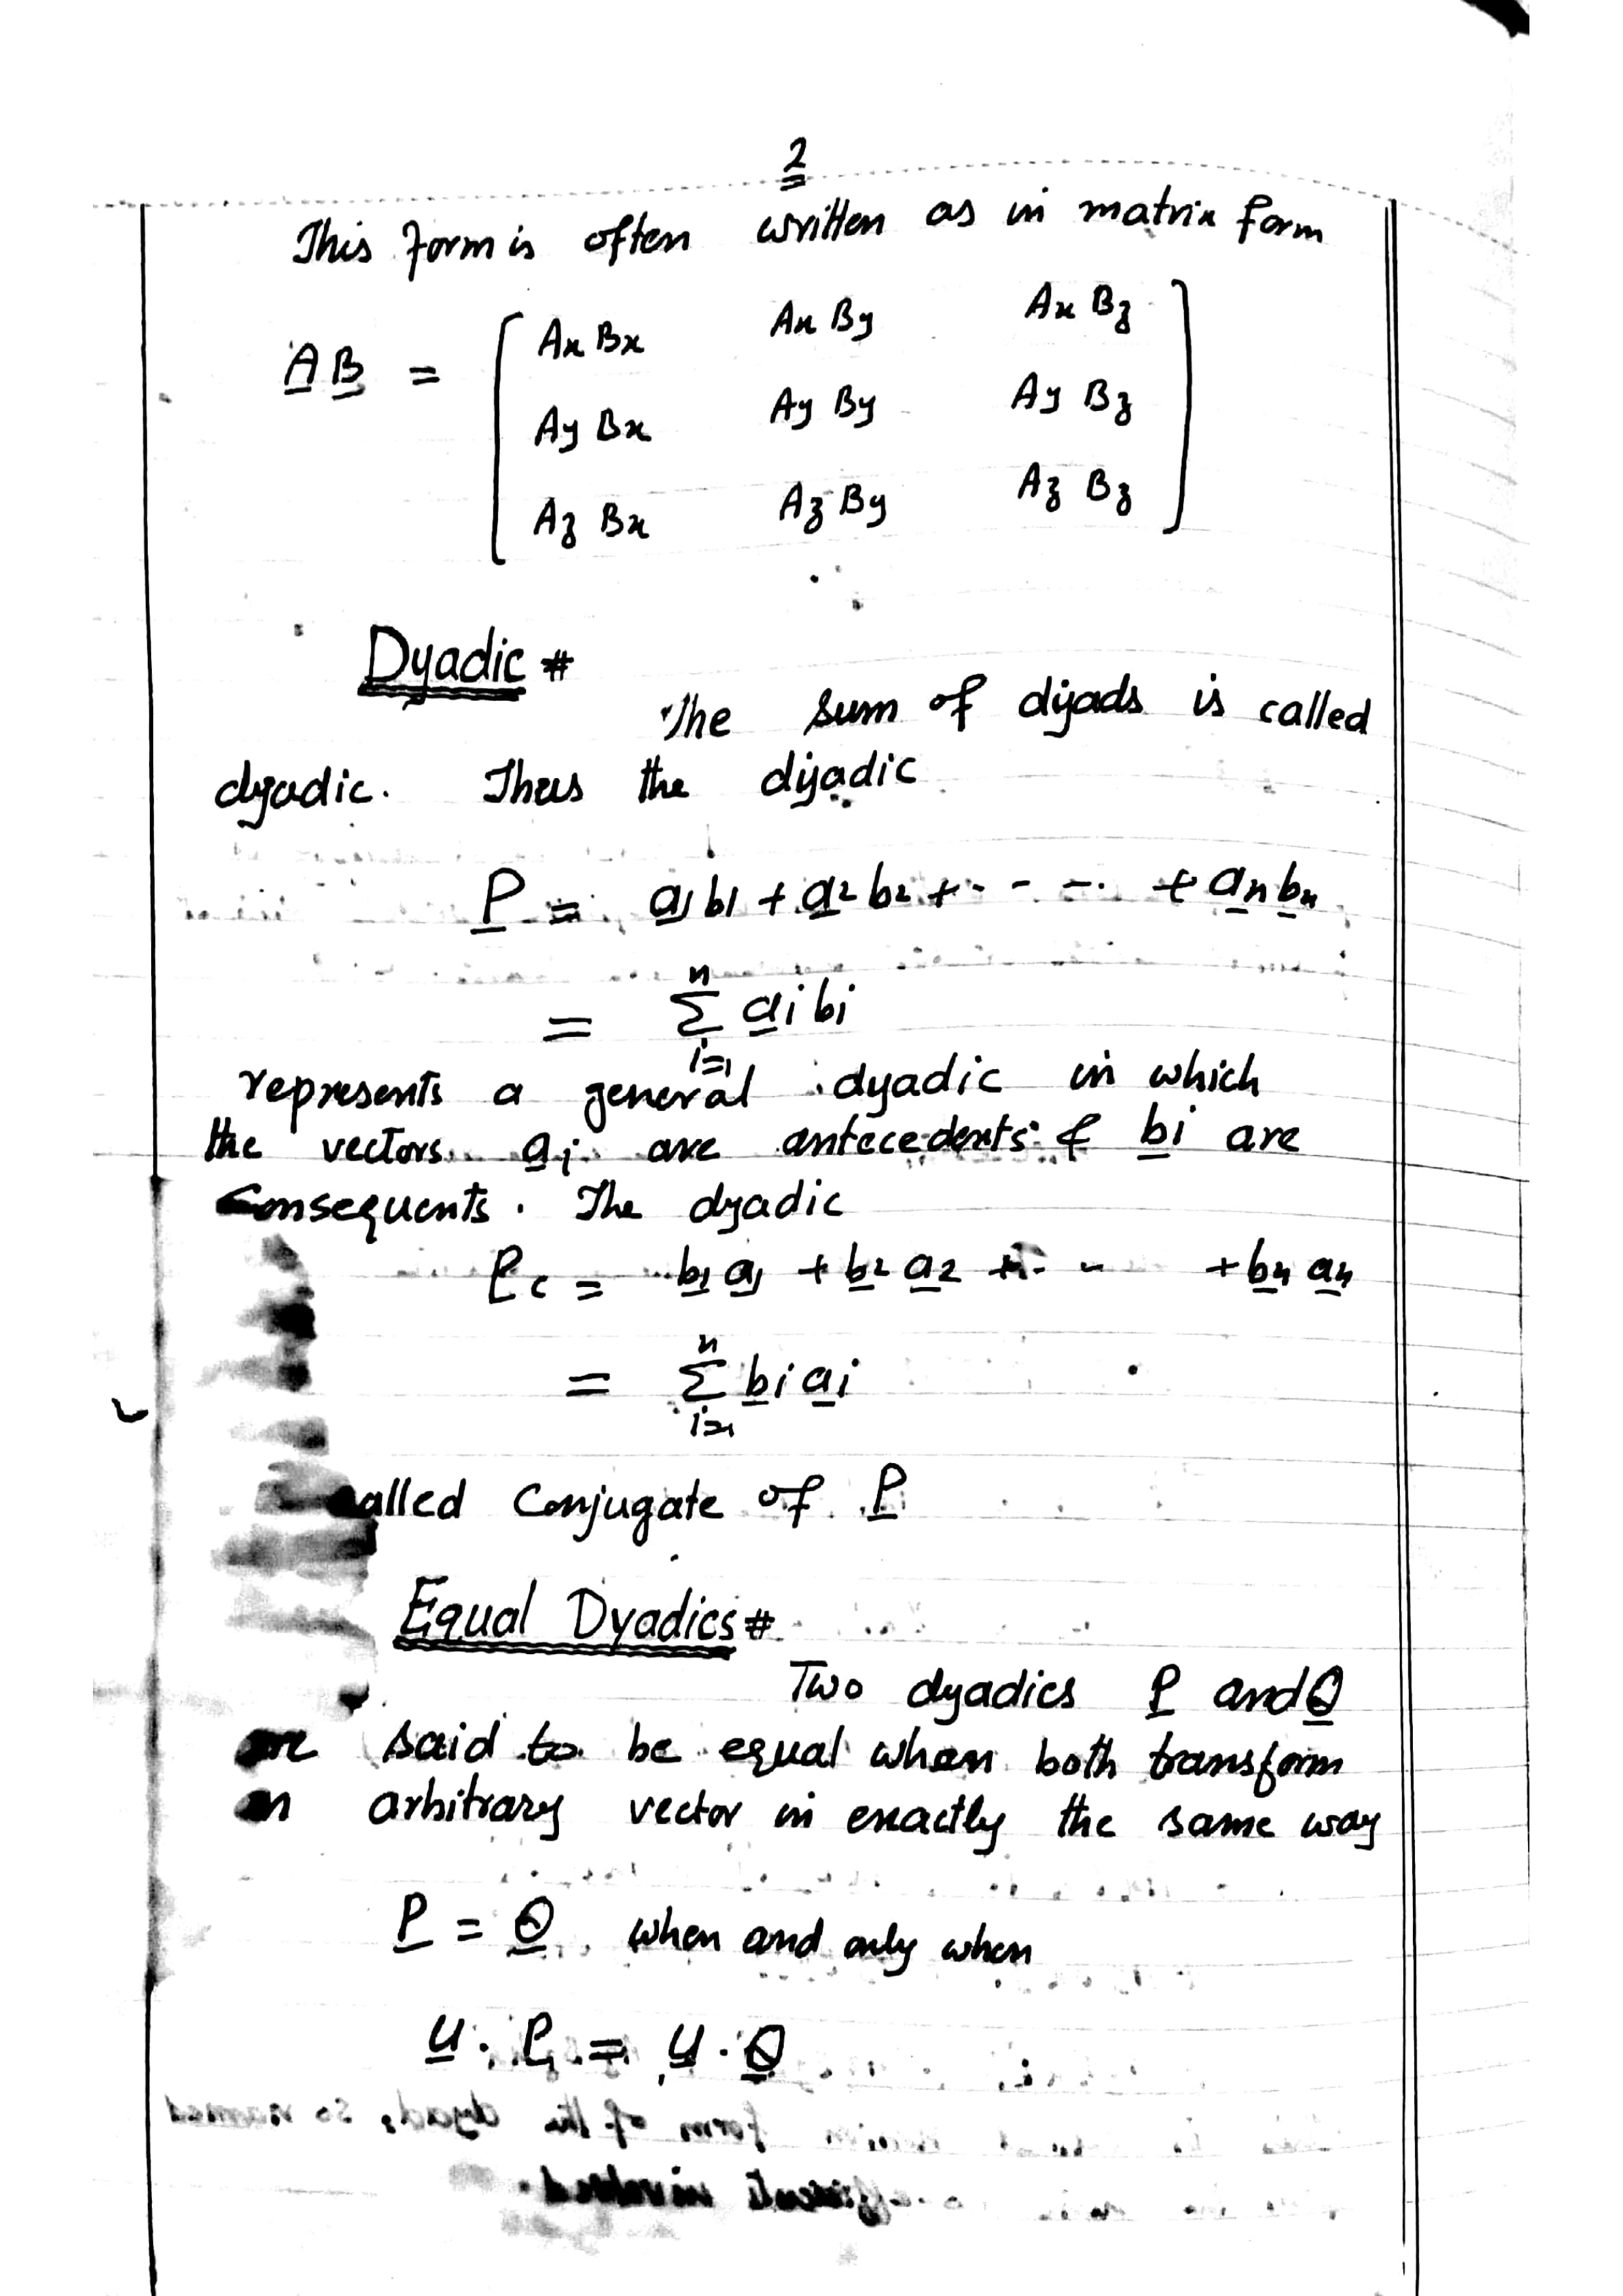 2
This form is often written as in matrix form
A B = [ Ax Bx Ax By Ax Bz
Ay Bx Ay By Ay Bz
Az Bx Az By Az Bz ]
Dyadic #
The sum of dyads is called
dyadic. Thus the dyadic
P = a1 b1 + a2 b2 + - - - + an bn
= Σ_{i=1}^{n} ai bi
represents a general dyadic in which
the vectors ai are antecedents & bi are
Consequents. The dyadic
Pc = b1 a1 + b2 a2 + - - + bn an
= Σ_{i=1}^{n} bi ai
called Conjugate of P
Equal Dyadics #
Two dyadics P and Q
are said to be equal when both transform
an arbitrary vector in exactly the same way
P = Q when and only when
u . P = u . Q